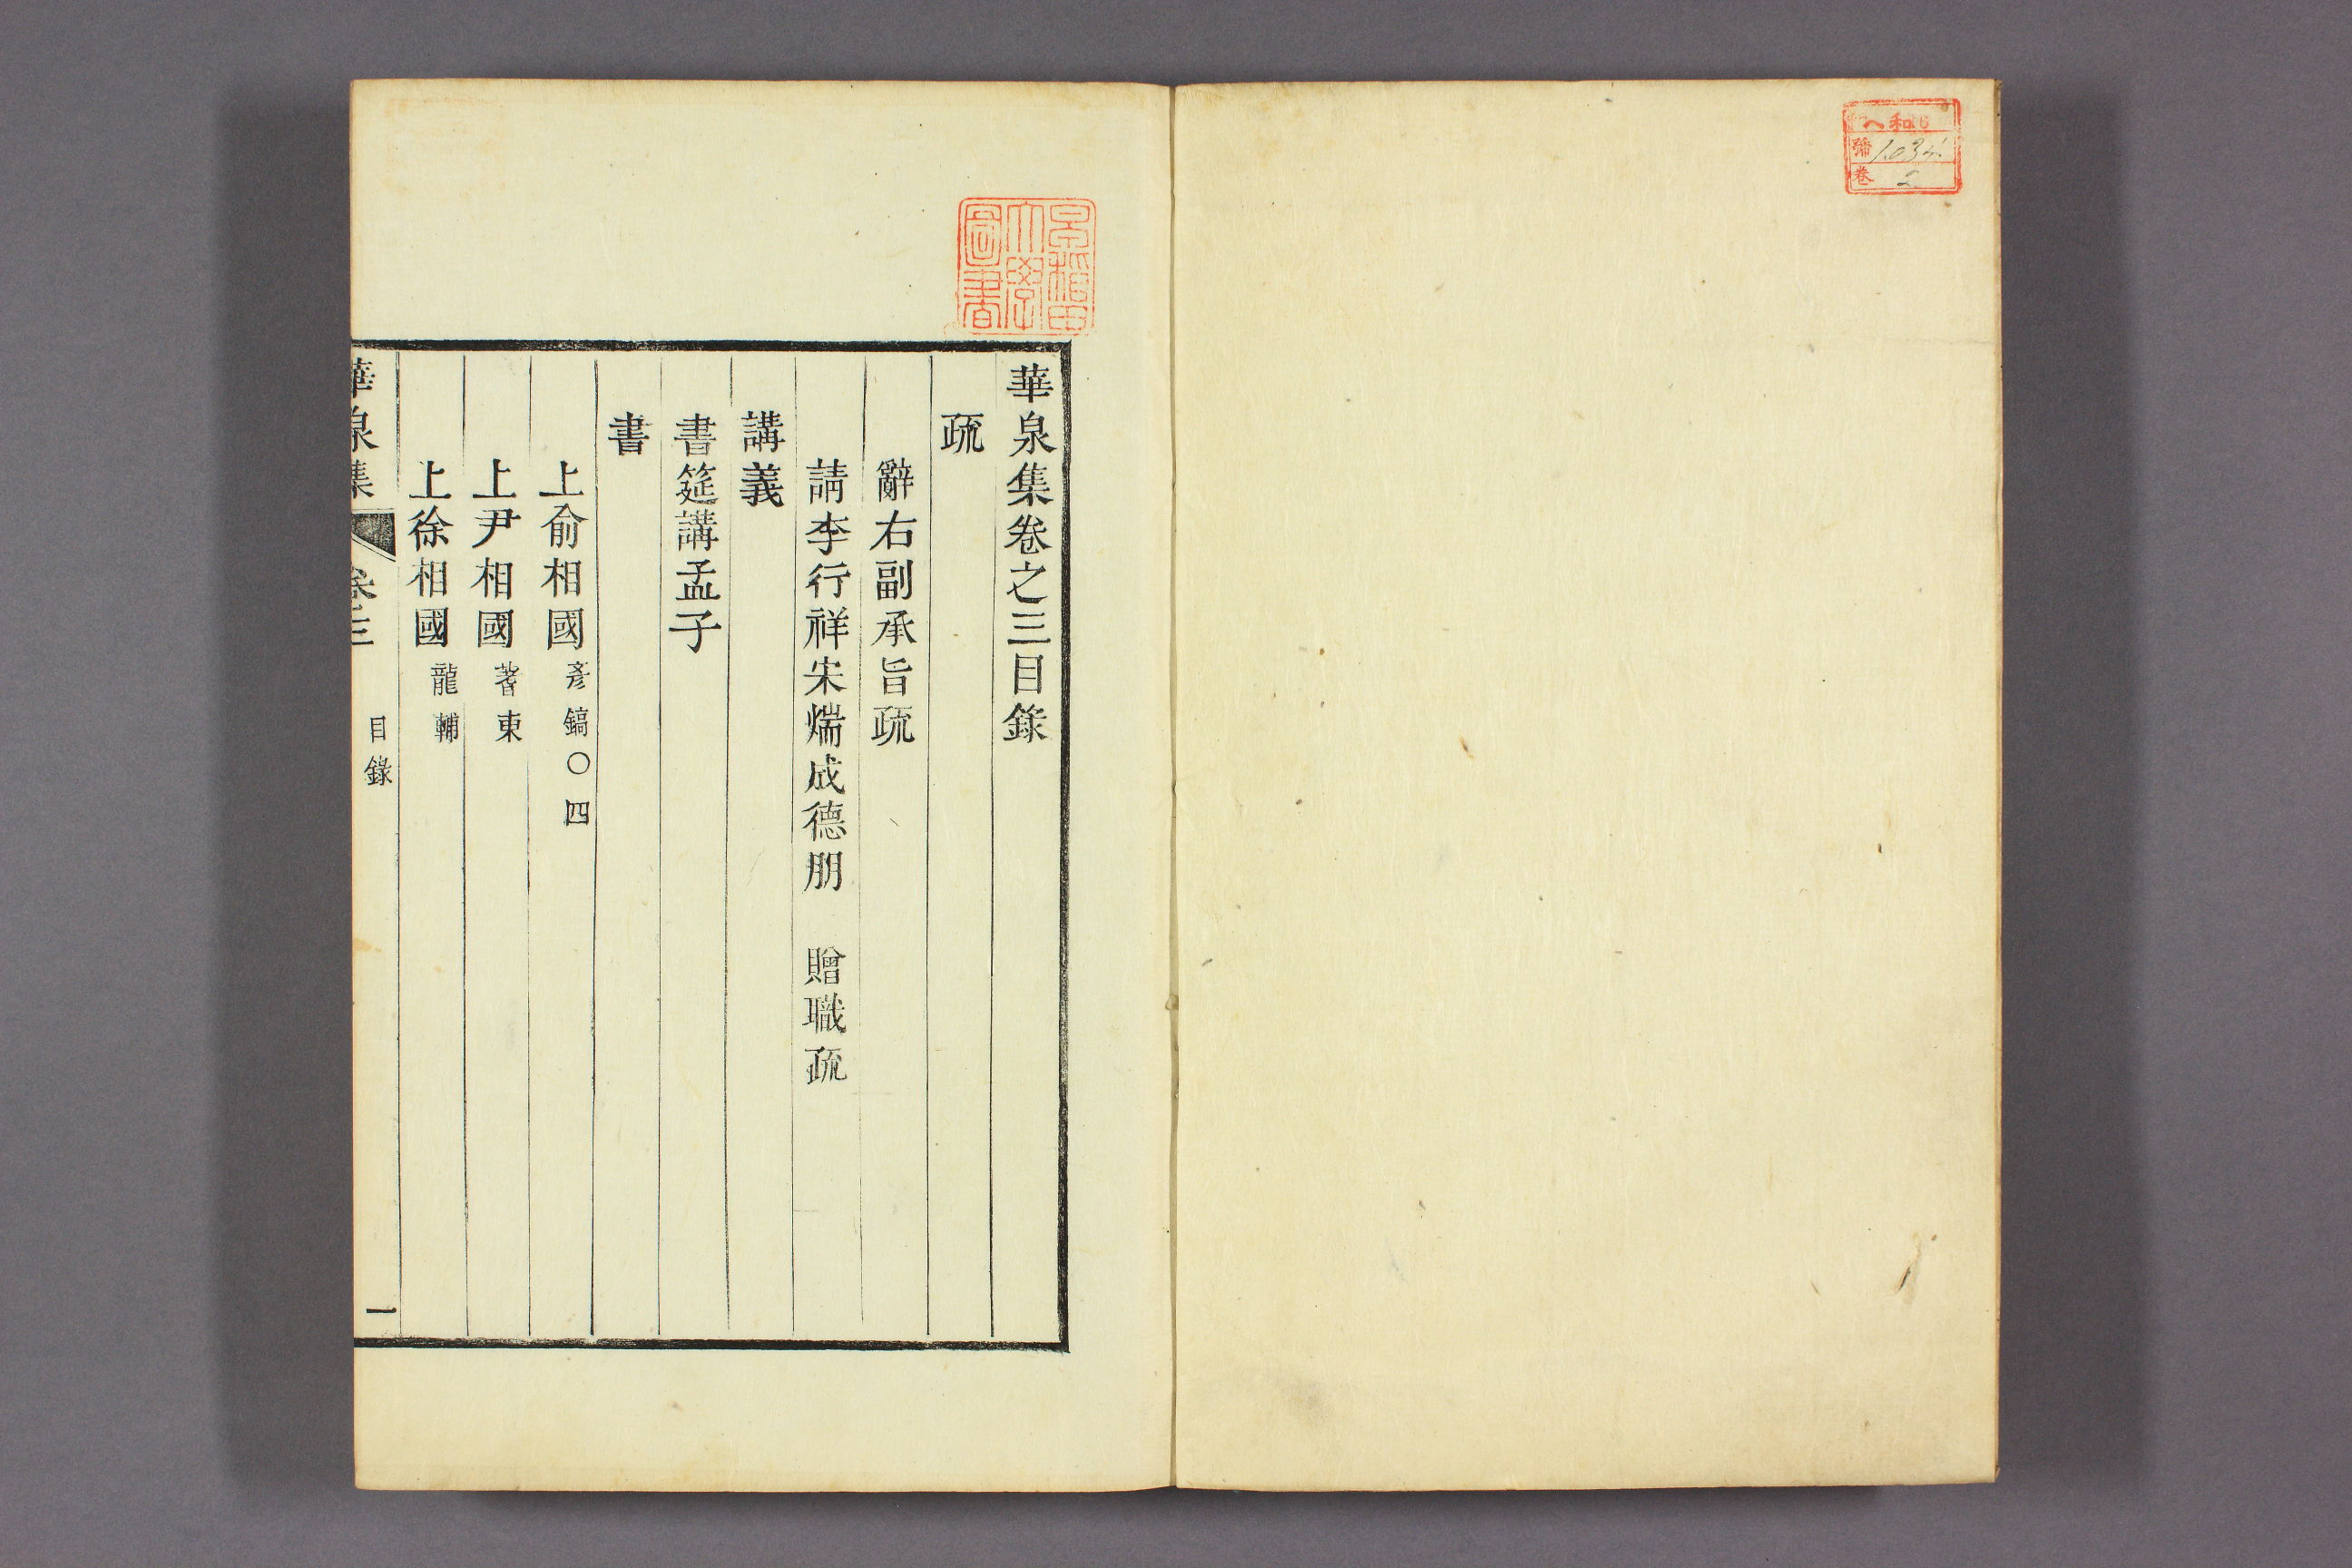 和
號 1034
卷 2
早稻田
大學
圖書
華泉集卷之三目錄
疏
辭右副承旨疏
請李行祥宋煓成德朋 贈職疏
講義
書筵講孟子
書
上俞相國 彦鎬○四
上尹相國 蓍東
上徐相國 龍輔
華泉集 卷三 目錄 一